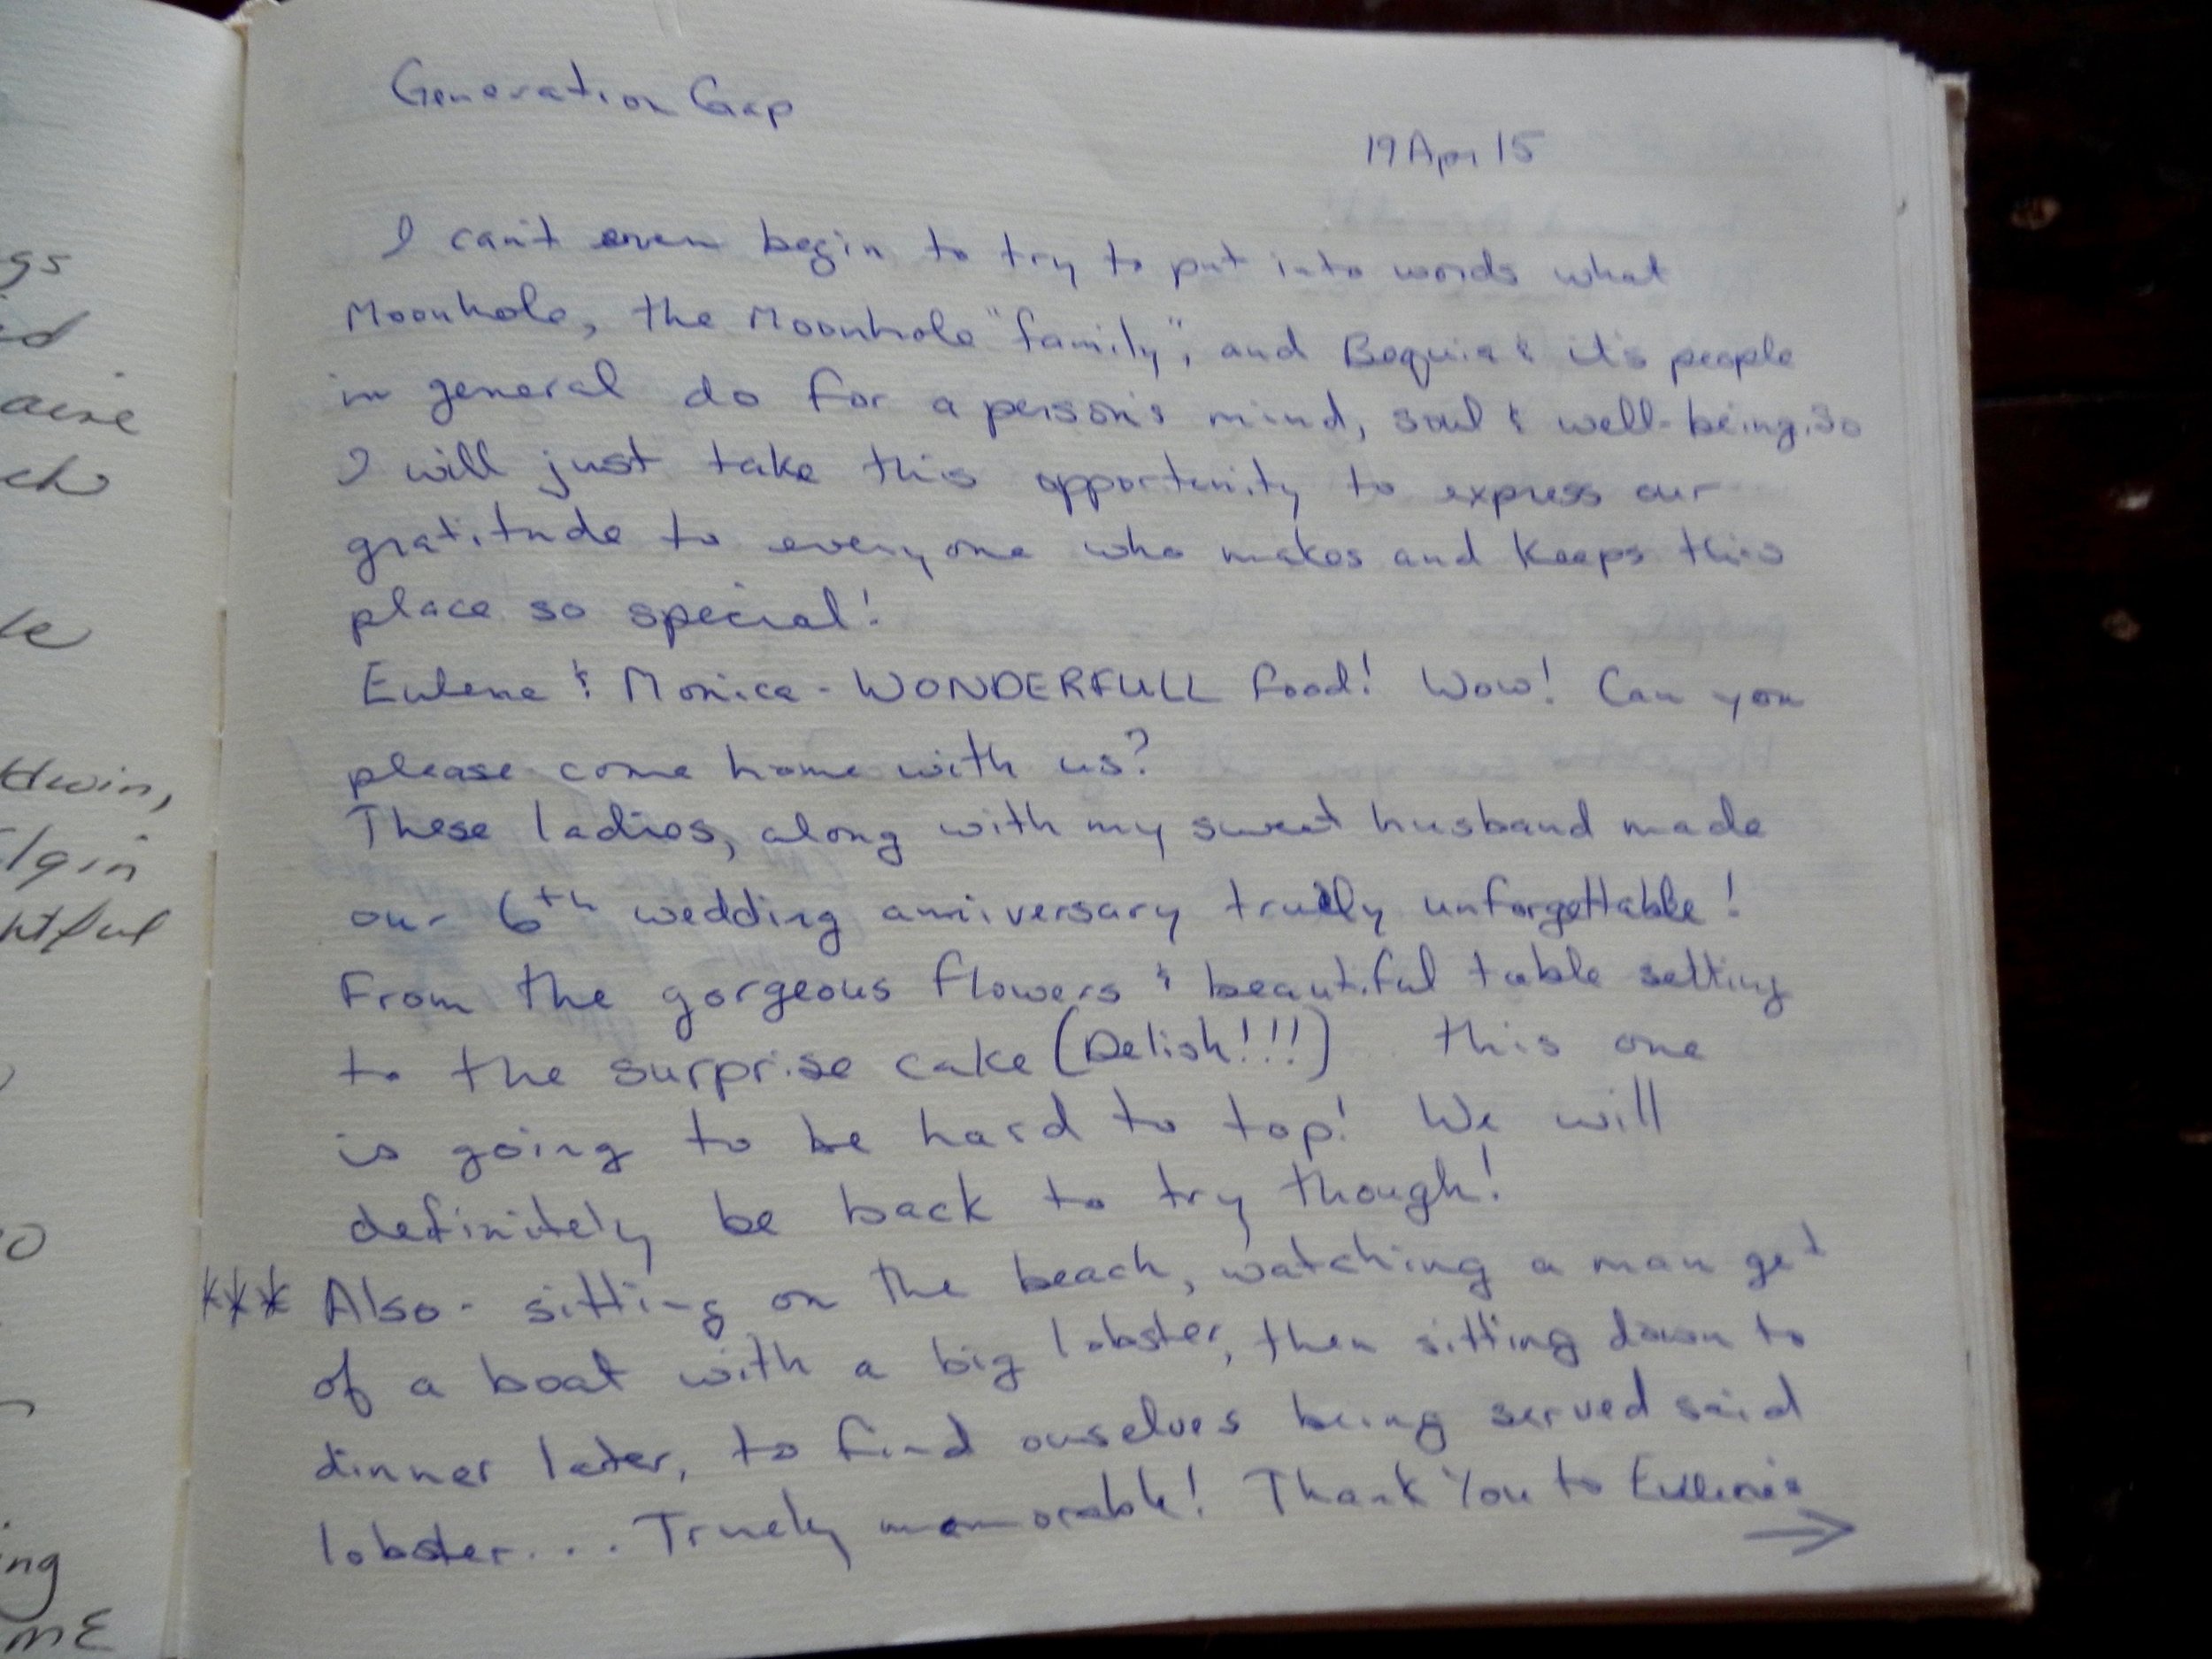 Generation Gap
19 Apr 15
I can't even begin to try to put into words what
Moonhole, the Moonhole "family", and Bequia & it's people
in general do for a person's mind, soul & well-being. So
I will just take this opportunity to express our
gratitude to everyone who makes and keeps this
place so special!
Eulene & Monica - WONDERFULL food! Wow! Can you
please come home with us?
These ladies, along with my sweet husband made
our 6th wedding anniversary truely unforgettable!
From the gorgeous flowers & beautiful table setting
to the surprise cake (Delish!!!) this one
is going to be hard to top! We will
definitely be back to try though!
*** Also - sitting on the beach, watching a man get
of a boat with a big lobster, then sitting down to
dinner later, to find ourselves being served said
lobster.... Truely memorable! Thank You to Eulene's
→
gs
ed
aine
le
dwin,
lgin
htful
o
ng
ME